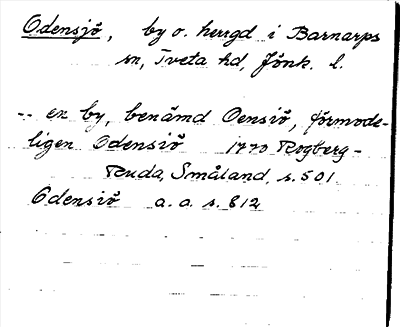 Odensjö, by o. herrgd i Barnarps
sn, Tveta hd, Jönk. l.
-- en by, benämd Oensiö, förmode-
ligen Odensiö 1770 Rogberg-
Ruda, Småland, s. 501
Odensiö a. a. s. 812